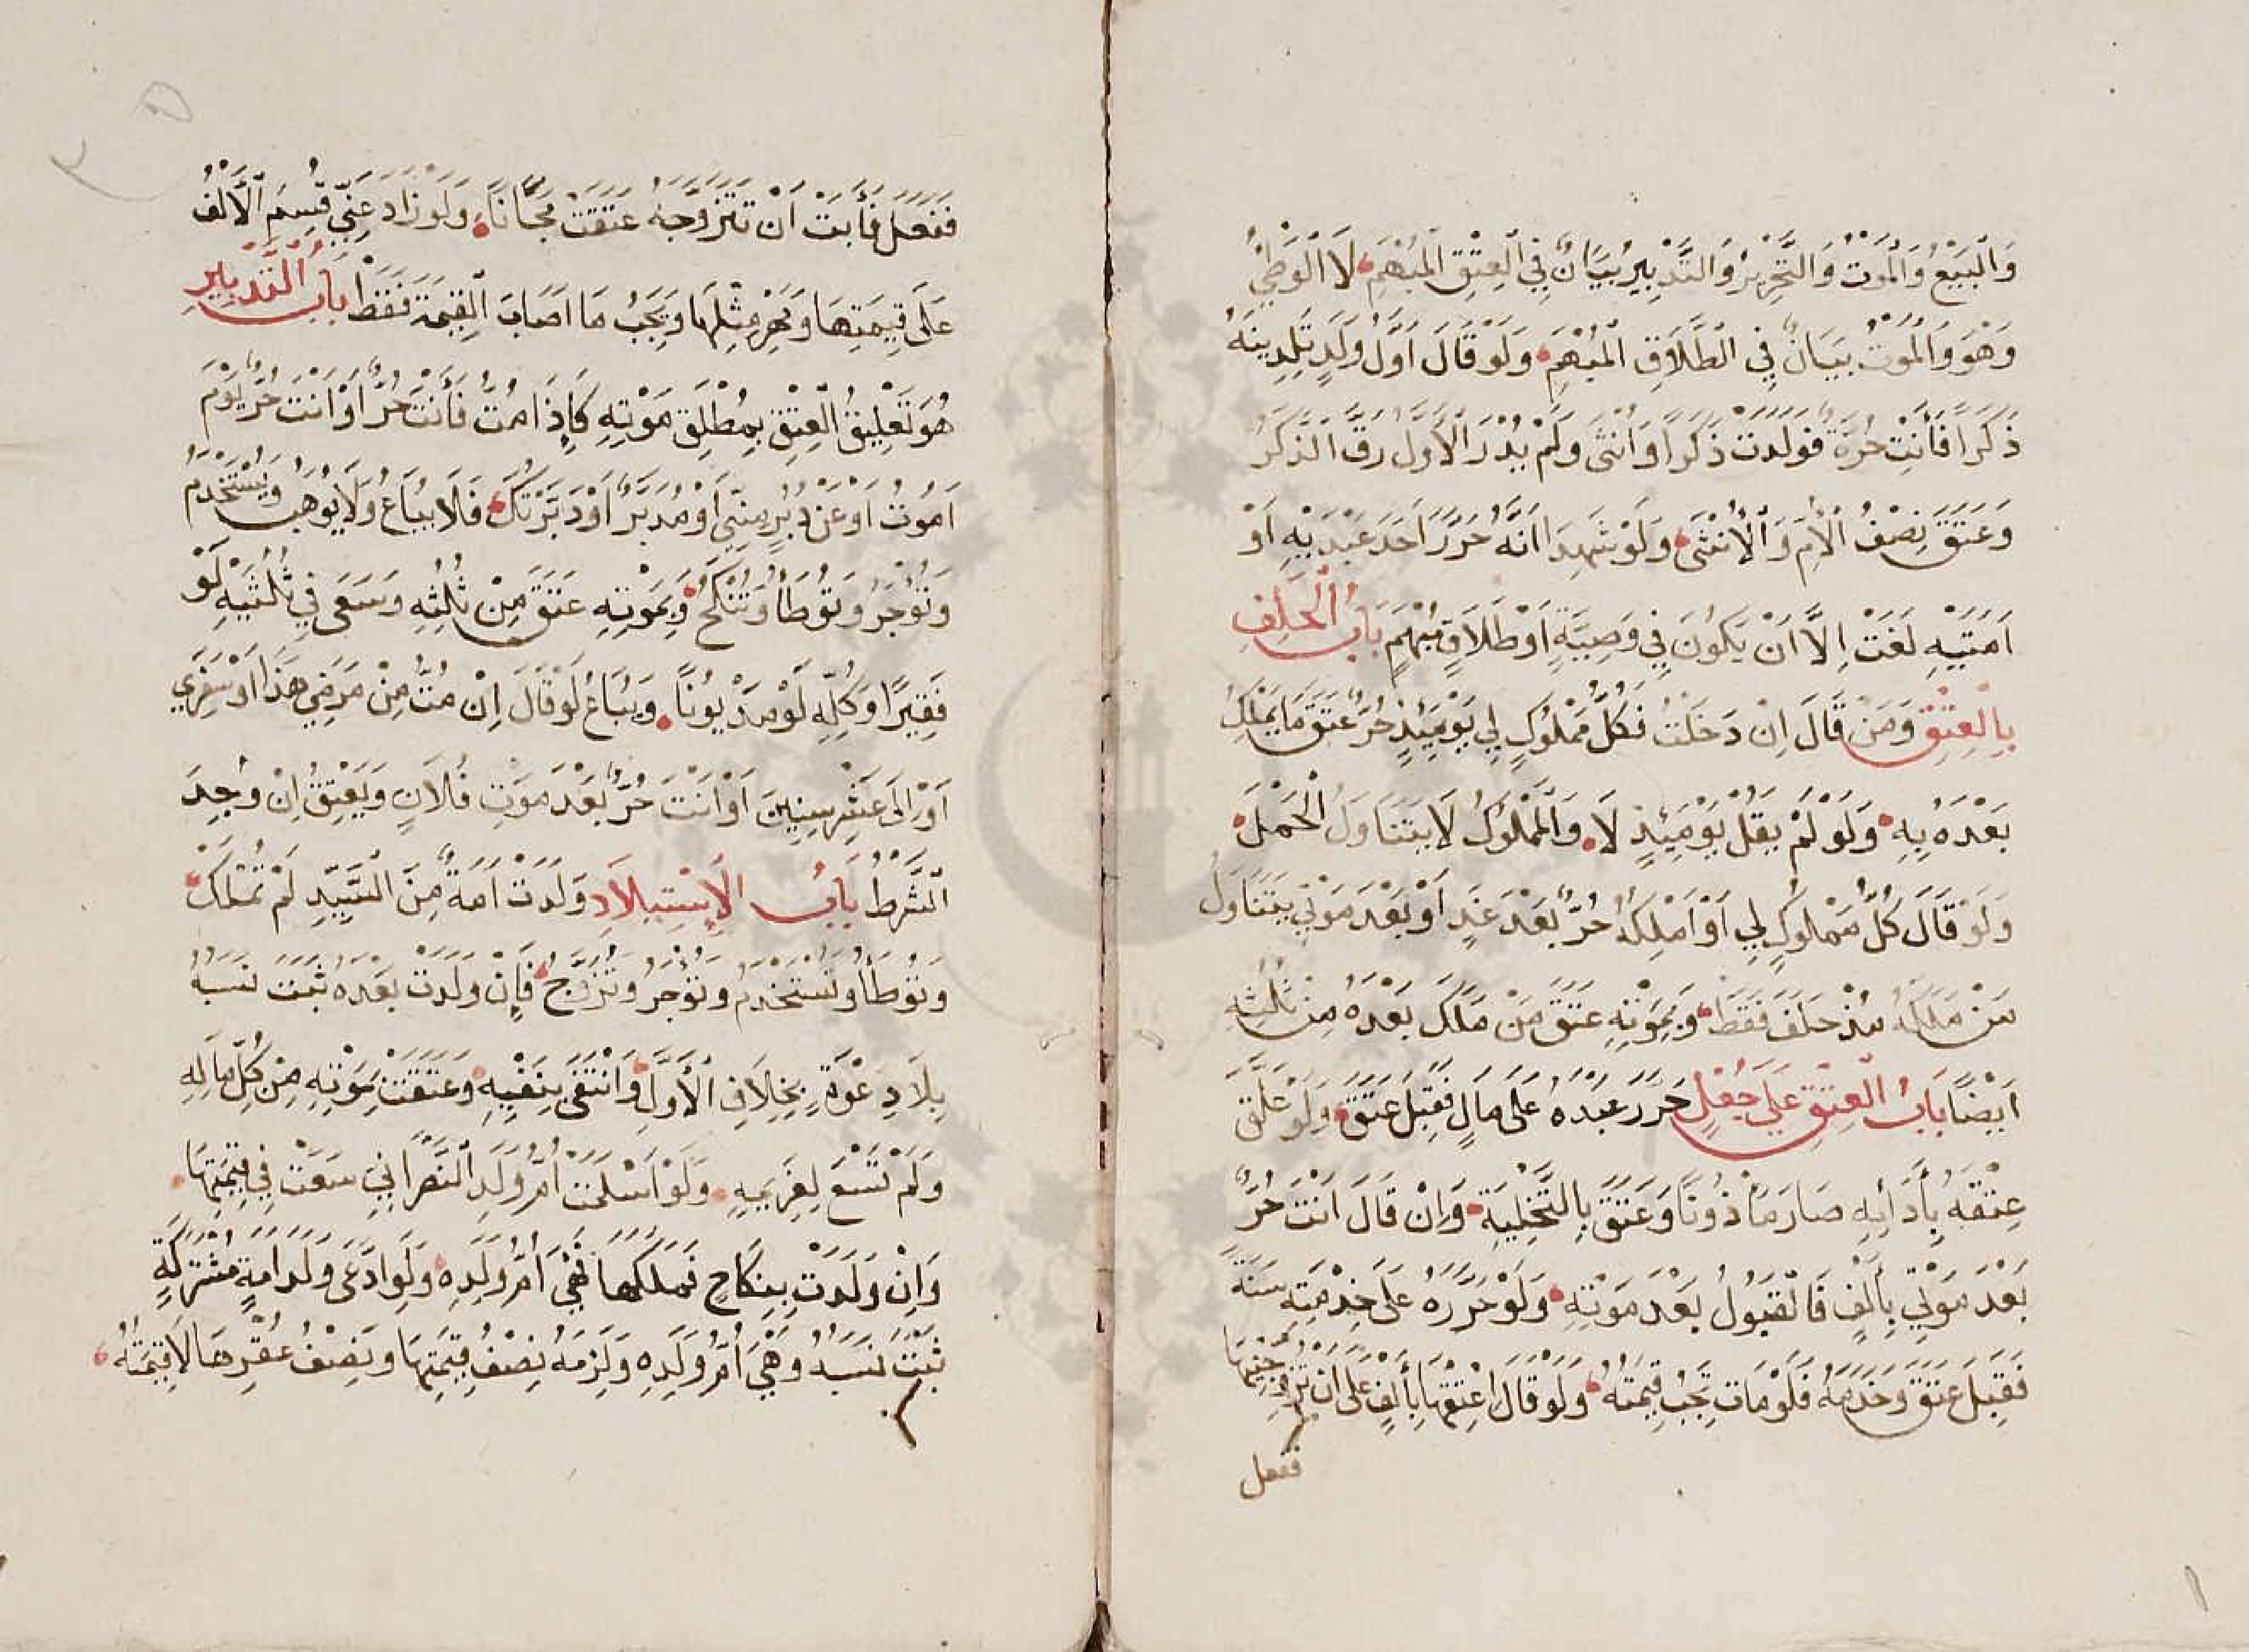 وَالْبَيْعُ وَالْمَوْتُ وَالتَّحْرِيرُ وَالتَّدْبِيرُ بَيَانٌ فِي الْعِتْقِ الْمُبْهَمِ لَا الْوَطْئُ
وَهُوَ وَالْمَوْتُ بَيَانٌ فِي الطَّلَاقِ الْمُبْهَمِ وَلَوْ قَالَ أَوَّلُ وَلَدٍ تَلِدِينَهُ
ذَكَرًا فَأَنْتِ حُرَّةٌ فَوَلَدَتْ ذَكَرًا وَأُنْثَى وَلَمْ يُدْرَ الْأَوَّلُ رَقَّ الذَّكَرُ
وَعَتَقَ نِصْفُ الْأُمِّ وَالْأُنْثَى وَلَوْ شَهِدَا أَنَّهُ حَرَّرَ أَحَدَ عَبْدَيْهِ أَوْ
أَمَتَيْهِ لَغَتْ إِلَّا أَنْ يَكُونَ فِي وَصِيَّةٍ أَوْ طَلَاقٍ مُبْهَمٍ بَابُ الْحَلِفِ
بِالْعِتْقِ وَمَنْ قَالَ إِنْ دَخَلْتُ فَكُلُّ مَمْلُوكٍ لِي يَوْمَئِذٍ حُرٌّ عَتَقَ مَا يَمْلِكُ
بَعْدَهُ بِهِ وَلَوْ لَمْ يَقُلْ يَوْمَئِذٍ لَا وَالْمَمْلُوكُ لَا يَتَنَاوَلُ الْحَمْلَ
وَلَوْ قَالَ كُلُّ مَمْلُوكٍ لِي أَوْ أَمْلِكُهُ حُرٌّ بَعْدَ غَدٍ أَوْ بَعْدَ مَوْتِي يَتَنَاوَلُ
مَنْ مَلَكَهُ مُنْذُ حَلَفَ فَقَطْ وَبِمَوْتِهِ عَتَقَ مَنْ مَلَكَ بَعْدَهُ مِنْ ثُلُثِهِ
أَيْضًا بَابُ الْعِتْقِ عَلَى جُعْلٍ حَرَّرَ عَبْدَهُ عَلَى مَالٍ فَقَبِلَ عَتَقَ وَلَوْ عَلَّقَ
عِتْقَهُ بِأَدَائِهِ صَارَ مَأْذُونًا وَعَتَقَ بِالتَّخْلِيَةِ وَإِنْ قَالَ أَنْتَ حُرٌّ
بَعْدَ مَوْتِي بِأَلْفٍ فَالْقَبُولُ بَعْدَ مَوْتِهِ وَلَوْ حَرَّرَهُ عَلَى خِدْمَتِهِ سَنَةً
فَقَبِلَ عَتَقَ وَخَدَمَهُ فَلَوْ مَاتَ تَجِبُ قِيمَتُهُ وَلَوْ قَالَ اعْتِقْهَا بِأَلْفٍ عَلَى أَنْ تُزَوِّجَنِيهَا
ففعل
فَفَعَلَ فَأَبَتْ أَنْ تَتَزَوَّجَهُ عَتَقَتْ مَجَّانًا وَلَوْ زَادَ عَنِّي قُسِمَ الْأَلْفُ
عَلَى قِيمَتِهَا وَمَهْرِ مِثْلِهَا وَيَجِبُ مَا أَصَابَ الْقِيمَةَ فَقَطْ بَابُ التَّدْبِيرِ
هُوَ تَعْلِيقُ الْعِتْقِ بِمُطْلَقِ مَوْتِهِ كَإِذَا مُتُّ فَأَنْتَ حُرٌّ أَوْ أَنْتَ حُرٌّ يَوْمَ
أَمُوتُ أَوْ عَنْ دُبُرٍ مِنِّي أَوْ مُدَبَّرٌ أَوْ دَبَّرْتُكَ فَلَا يُبَاعُ وَلَا يُوهَبُ وَيُسْتَخْدَمُ
وَتُؤْجَرُ وَتُوطَأُ وَتُنْكَحُ وَبِمَوْتِهِ عَتَقَ مِنْ ثُلُثِهِ وَسَعَى فِي ثُلُثَيْهِ لَوْ
فَقِيرًا وَكُلِّهِ لَوْ مَدْيُونًا وَيُبَاعُ لَوْ قَالَ إِنْ مُتُّ مِنْ مَرَضِي هَذَا أَوْ سَفَرِي
أَوْ إِلَى عَشْرِ سِنِينَ أَوْ أَنْتَ حُرٌّ بَعْدَ مَوْتِ فُلَانٍ وَيَعْتِقُ إِنْ وُجِدَ
الشَّرْطُ بَابُ الْإِسْتِيلَادِ وَلَدَتْ أَمَةٌ مِنَ السَّيِّدِ لَمْ تُمْلَكْ
وَتُوطَأُ وَتُسْتَخْدَمُ وَتُؤْجَرُ وَتُزَوَّجُ فَإِنْ وَلَدَتْ بَعْدَهُ ثَبَتَ نَسَبُهُ
بِلَا دِعْوَةٍ بِخِلَافِ الْأَوَّلِ وَانْتَفَى بِنَفْيِهِ وَعَتَقَتْ بِمَوْتِهِ مِنْ كُلِّ مَالِهِ
وَلَمْ تَسْعَ لِغَرِيمِهِ وَلَوْ أَسْلَمَتْ أُمُّ وَلَدِ النَّصْرَانِيِّ سَعَتْ فِي قِيمَتِهَا
وَإِنْ وَلَدَتْ بِنِكَاحٍ فَمَلَكَهَا فَهِيَ أُمُّ وَلَدِهِ وَلَوِ ادَّعَى وَلَدَ أَمَةٍ مُشْتَرَكَةٍ
ثَبَتَ نَسَبُهُ وَهِيَ أُمُّ وَلَدِهِ وَلَزِمَهُ نِصْفُ قِيمَتِهَا وَنِصْفُ عُقْرِهَا لَا قِيمَتُهُ